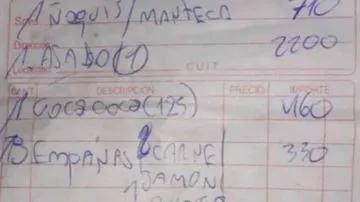 1 ÑOQUIS/MANTECA 710
1 ASADO(1) 2200
CUIT
CANT. DESCRIPCIÓN PRECIO IMPORTE
1 COCACOCA(125) 460
3 EMPAÑAS 2 CARNE/ 330
1 JAMON/